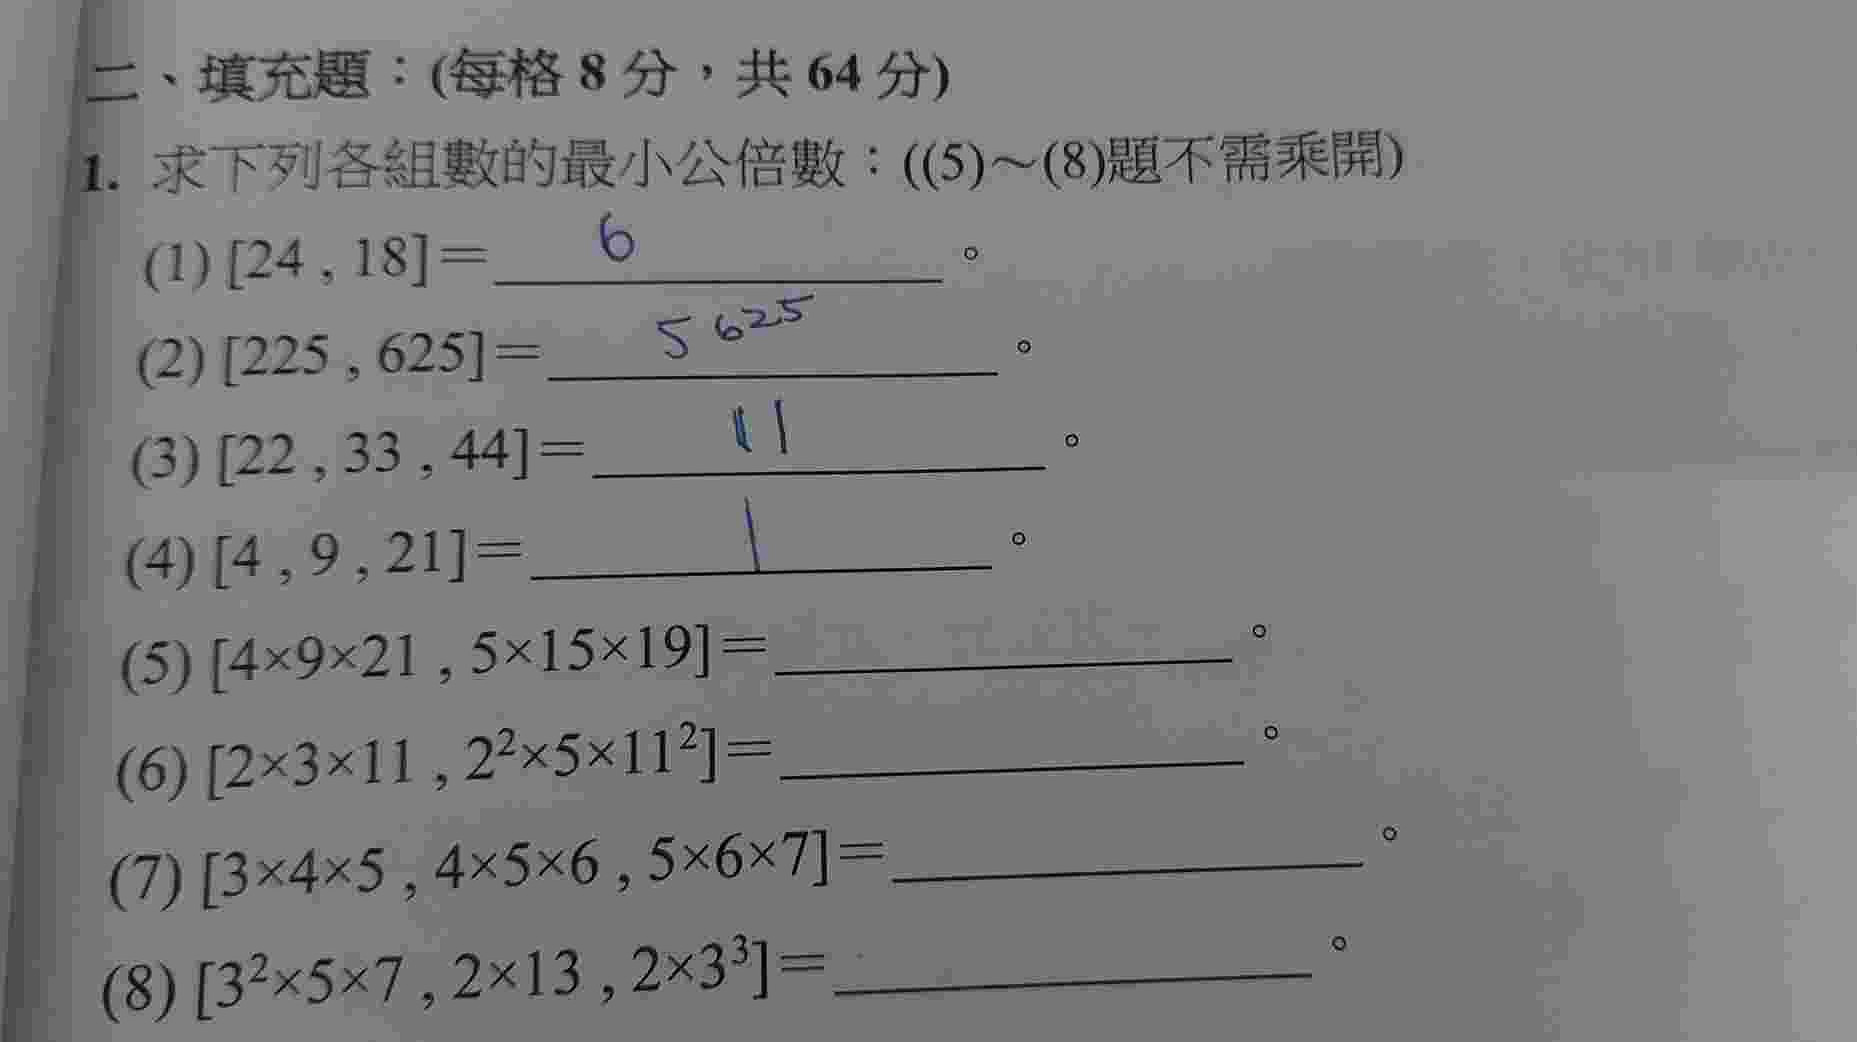 二、填充題：(每格 8 分，共 64 分)
1. 求下列各組數的最小公倍數：((5)～(8)題不需乘開)
(1) [24 , 18]＝ 6 。
(2) [225 , 625]＝ 5625 。
(3) [22 , 33 , 44]＝ 11 。
(4) [4 , 9 , 21]＝ 1 。
(5) [4×9×21 , 5×15×19]＝ 。
(6) [2×3×11 , 2²×5×11²]＝ 。
(7) [3×4×5 , 4×5×6 , 5×6×7]＝ 。
(8) [3²×5×7 , 2×13 , 2×3³]＝ 。